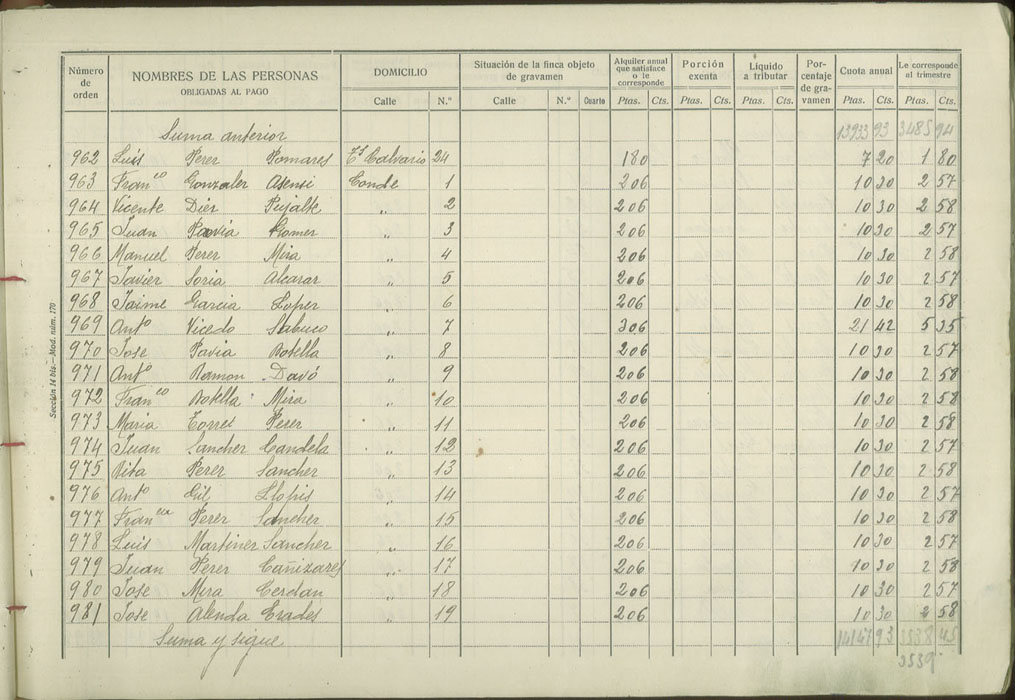 Número de orden | NOMBRES DE LAS PERSONAS OBLIGADAS AL PAGO | DOMICILIO | Situación de la finca objeto de gravamen | Alquiler anual que satisface o le corresponde | Porción exenta | Líquido a tributar | Porcentaje de gravamen | Cuota anual | Le corresponde al trimestre
Calle | N.º | Calle | N.º | Cuarto | Ptas. | Cts. | Ptas. | Cts. | Ptas. | Cts. | Ptas. | Cts. | Ptas. | Cts.
Suma anterior 13933 93 3485 94
962 Luis Perez Pomares Tª Calvario 24 180 7 20 1 80
963 Franco Gonzalez Asensi Conde 1 206 10 30 2 57
964 Vicente Diez Pujalte " 2 206 10 30 2 58
965 Juan Pavia Gomez " 3 206 10 30 2 57
966 Manuel Perez Mira " 4 206 10 30 2 58
967 Javier Soria Alcaraz " 5 206 10 30 2 57
968 Jaime Garcia Lopez " 6 206 10 30 2 58
969 Antº Vicedo Sabuco " 7 306 21 42 5 35
970 Jose Pavia Botella " 8 206 10 30 2 57
971 Antº Ramon Davó " 9 206 10 30 2 58
972 Franco Botella Mira " 10 206 10 30 2 58
973 Maria Torres Perez " 11 206 10 30 2 58
974 Juan Sanchez Candela " 12 206 10 30 2 57
975 Rita Perez Sanchez " 13 206 10 30 2 58
976 Antº Gil Llopis " 14 206 10 30 2 57
977 Franca Perez Sanchez " 15 206 10 30 2 58
978 Luis Martinez Sanchez " 16 206 10 30 2 57
979 Juan Perez Cañizares " 17 206 10 30 2 58
980 Jose Mira Cerdan " 18 206 10 30 2 57
981 Jose Alenda Erades " 19 206 10 30 2 58
Suma y sigue 14147 93 3538 45
3539
Sección 14 bis.—Mod. núm. 170